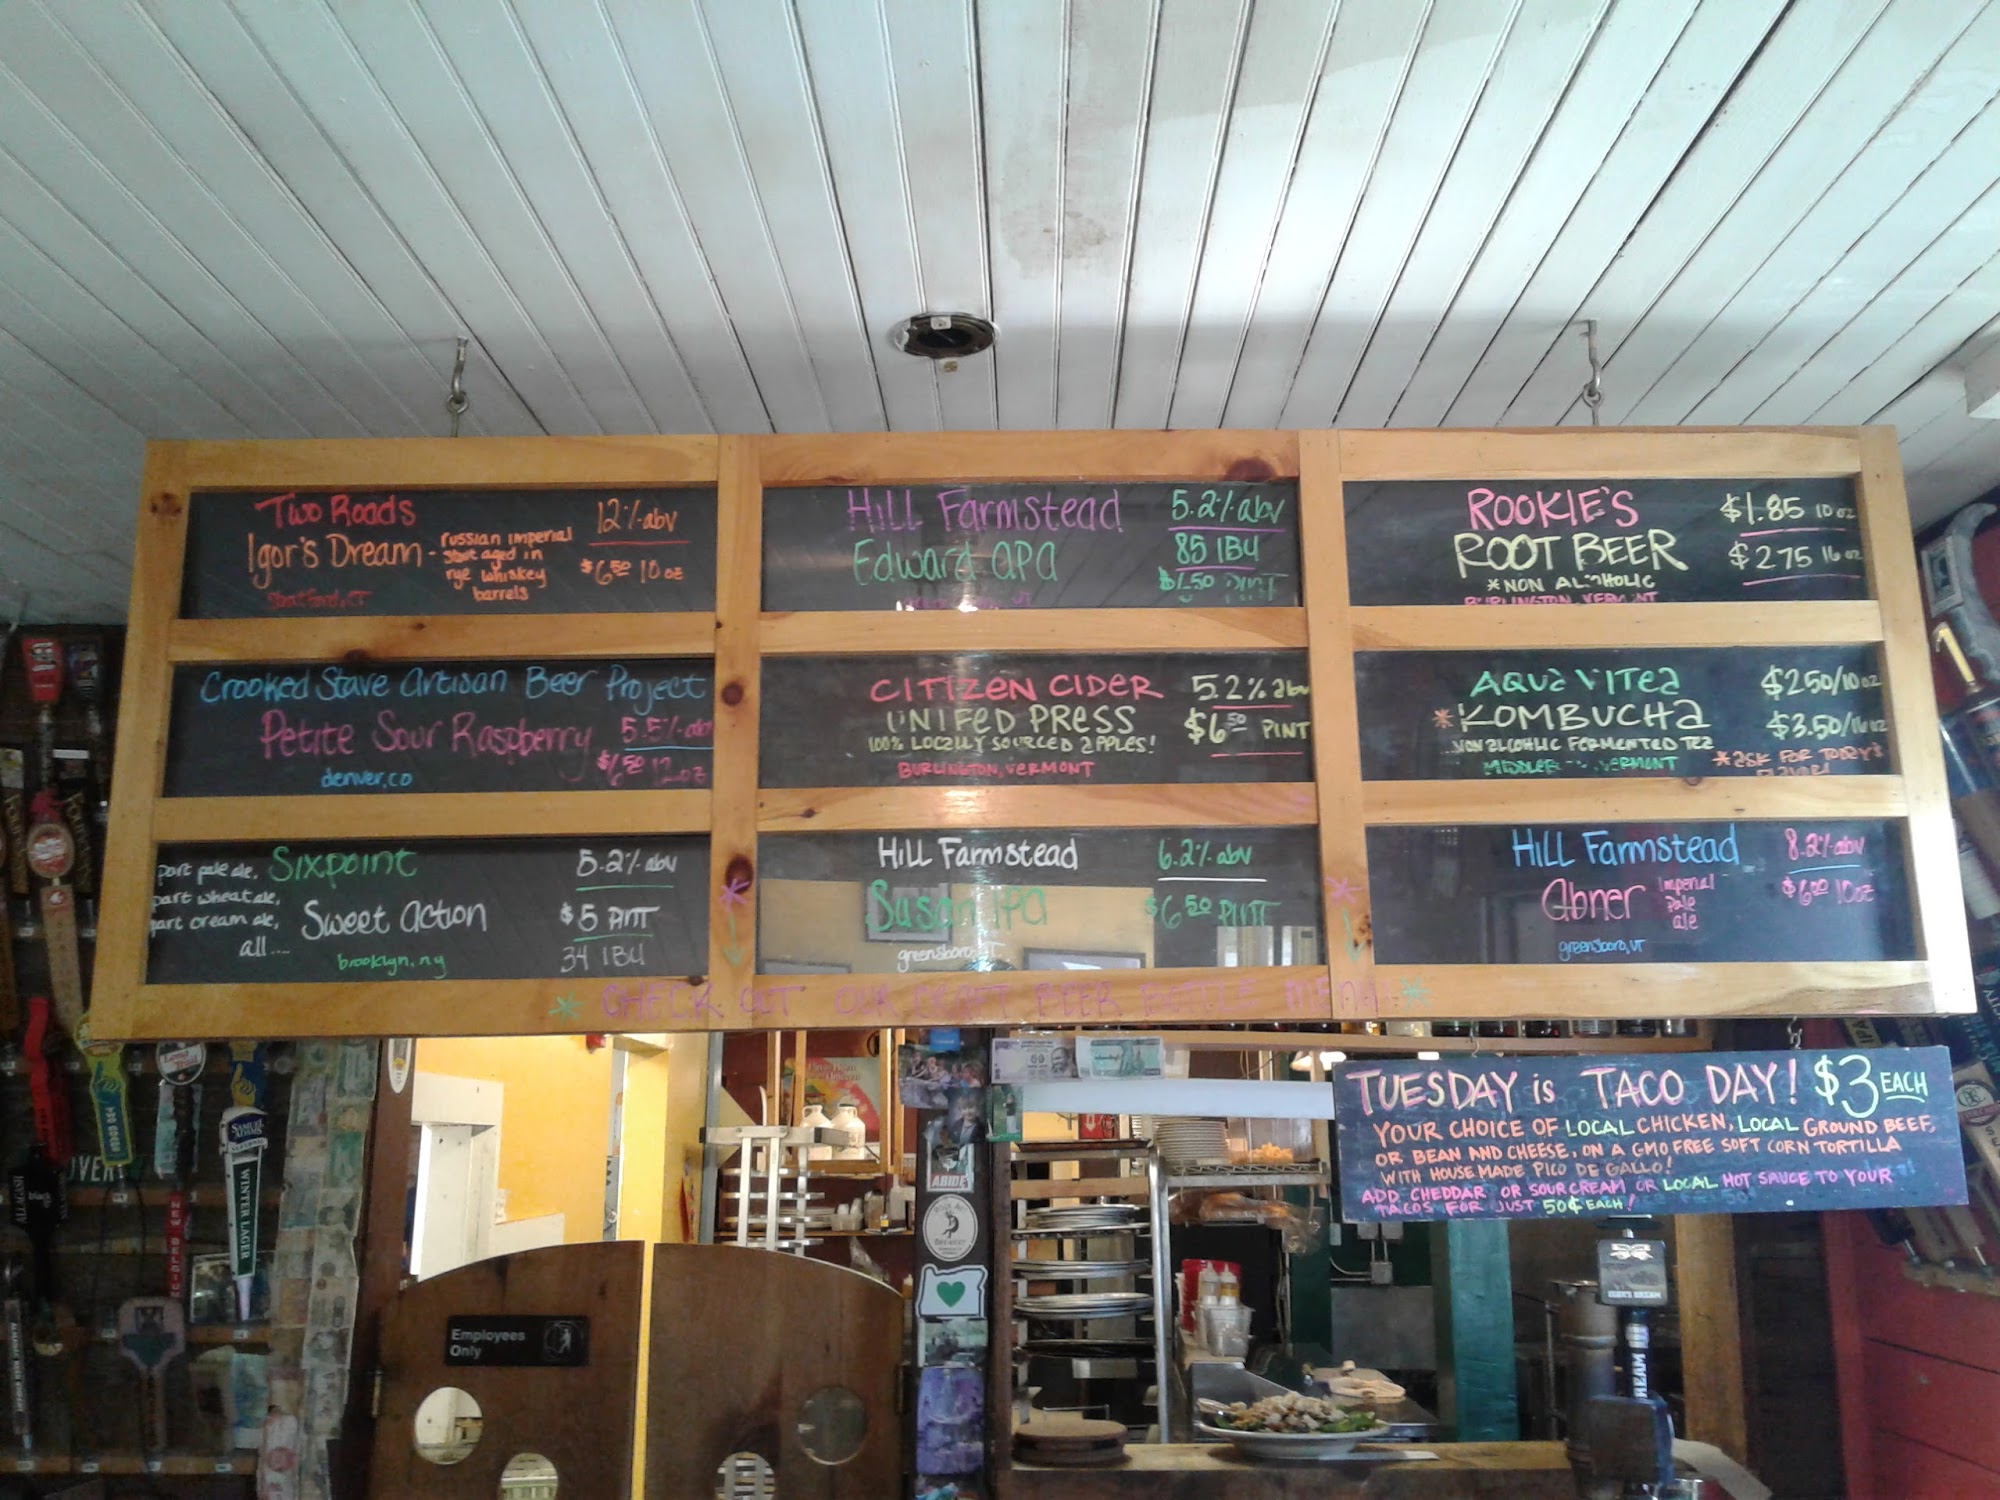 Two Roads
Igor's Dream -
russian imperial
stout aged in
rye whiskey
barrels
12% abv
$6.50 10 oz
Stratford, CT
Hill Farmstead
Edward APA
5.2% abv
85 IBU
PINT
ROOKIE'S
ROOT BEER
*NON ALCOHOLIC
BURLINGTON, VERMONT
$1.85 10 oz
$2.75 16 oz
Crooked Stave Artisan Beer Project
Petite Sour Raspberry
5.5% abv
$6.50 12 oz
denver, co
CITIZEN CIDER
UNIFED PRESS
100% LOCALLY SOURCED APPLES!
BURLINGTON, VERMONT
5.2% abv
$6.50 PINT
AQUA VITEA
*KOMBUCHA
NON ALCOHLIC FERMENTED TEA
MIDDLEBURY, VERMONT
$2.50/10 oz
$3.50/16 oz
*ASK FOR TODAY'S
FLAVOR!
part pale ale,
part wheat ale,
part cream ale,
all....
Sixpoint
Sweet Action
brooklyn, ny
5.2% abv
$5 PINT
34 IBU
Hill Farmstead
Susan IPA
greensboro, VT
6.2% abv
$6.50 PINT
Hill Farmstead
Abner
Imperial
pale
ale
greensboro, VT
8.2% abv
$6.00 10oz
* CHECK OUT OUR CRAFT BEER BOTTLE MENU *
TUESDAY is TACO DAY! $3 EACH
YOUR CHOICE OF LOCAL CHICKEN, LOCAL GROUND BEEF,
OR BEAN AND CHEESE, ON A GMO FREE SOFT CORN TORTILLA
WITH HOUSE MADE PICO DE GALLO!
ADD CHEDDAR OR SOUR CREAM OR LOCAL HOT SAUCE TO YOUR
TACOS FOR JUST 50¢ EACH!
Employees
Only
SAMUEL
ADAMS
WINTER LAGER
ALLAGASH
black
NEW BELGIUM
ABIDE
IGOR'S DREAM